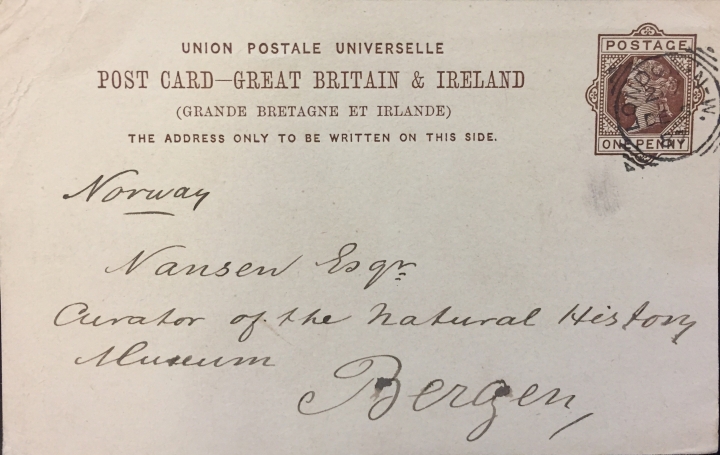 UNION POSTALE UNIVERSELLE
POST CARD—GREAT BRITAIN & IRELAND
(GRANDE BRETAGNE ET IRLANDE)
THE ADDRESS ONLY TO BE WRITTEN ON THIS SIDE.
POSTAGE
ONE PENNY
LONDON N.W.
Norway
Nansen Esqr
Curator of the Natural History
Museum
Bergen,